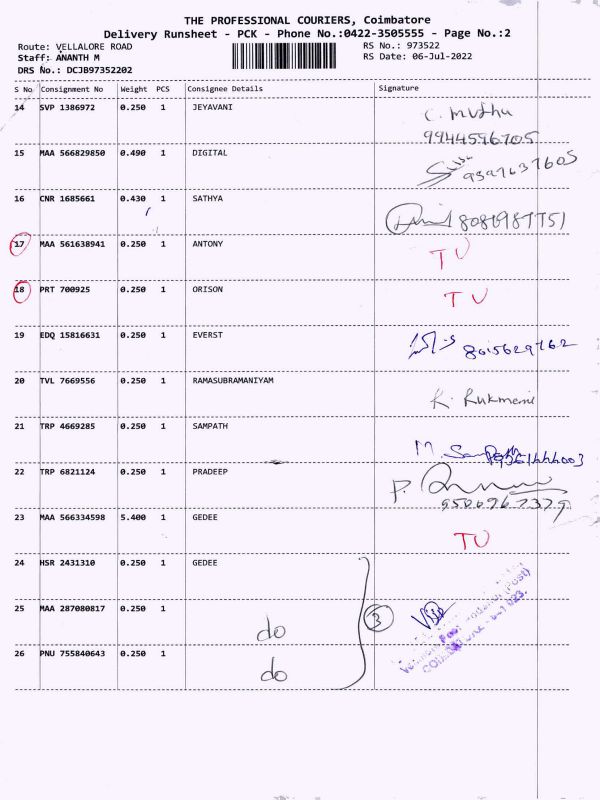 THE PROFESSIONAL COURIERS, Coimbatore
Delivery Runsheet - PCK - Phone No.:0422-3505555 - Page No.:2
Route: VELLALORE ROAD RS No.: 973522
Staff: ANANTH M RS Date: 06-Jul-2022
DRS No.: DCJB97352202
S No Consignment No Weight PCS Consignee Details Signature
14 SVP 1386972 0.250 1 JEYAVANI C. Muthu
9944596705
15 MAA 566829850 0.490 1 DIGITAL
16 CNR 1685661 0.430 1 SATHYA
17 MAA 561638941 0.250 1 ANTONY TU
18 PRT 700925 0.250 1 ORISON TU
19 EDQ 15816631 0.250 1 EVERST 8015629762
20 TVL 7669556 0.250 1 RAMASUBRAMANIYAM K. Rukmani
21 TRP 4669285 0.250 1 SAMPATH M. Sampath
22 TRP 6821124 0.250 1 PRADEEP P.
9500967379
23 MAA 566334598 5.400 1 GEDEE TU
24 HSR 2431310 0.250 1 GEDEE
25 MAA 287080817 0.250 1 do 3
26 PNU 755840643 0.250 1 do